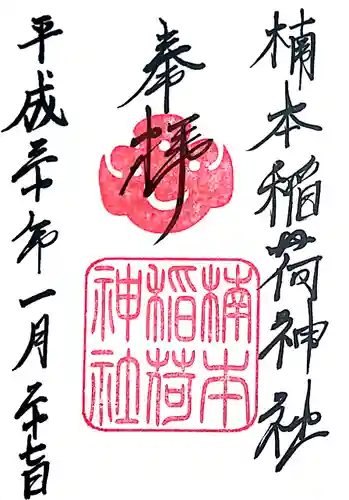 楠本稲荷神社
奉拝
楠本
稲荷
神社
平成三十年一月二十七日